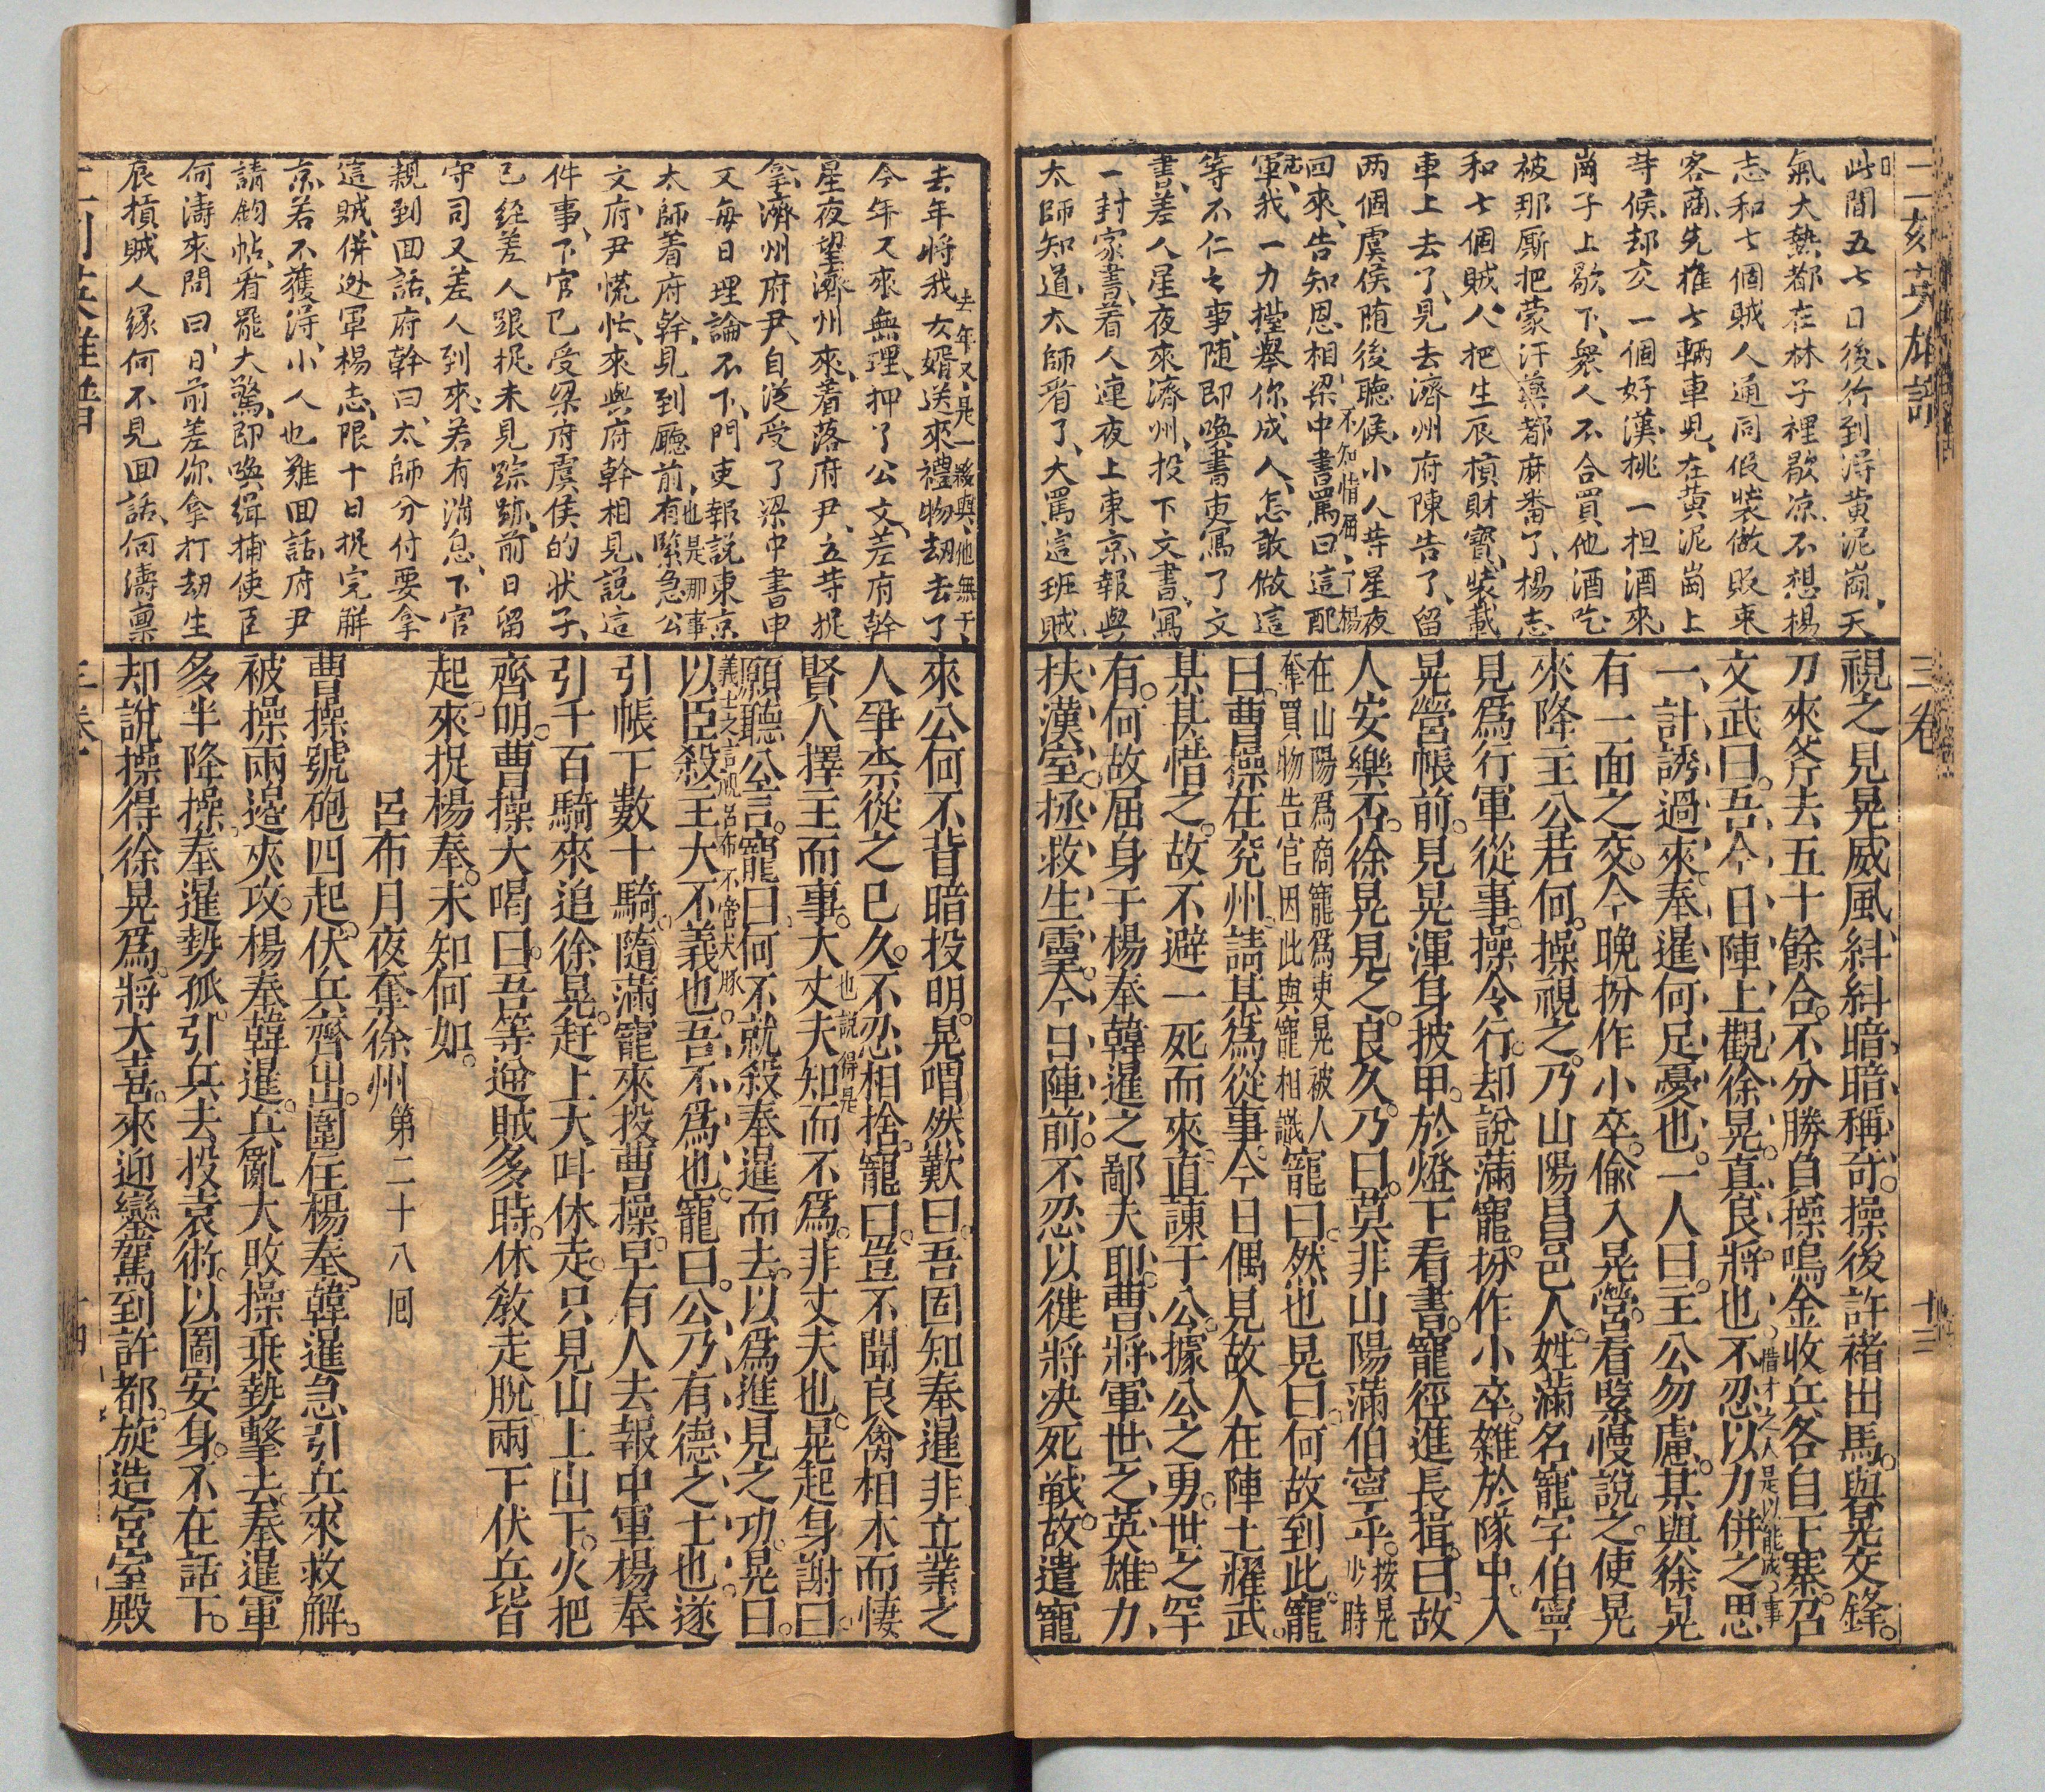 二刻英雄譜
三卷
十三
此間五七日後行到淂黄泥崗天
氣大熱都在林子裡歇凉不想楊
志和七個賊人通同假裝做販棗
客商先推七輌車児在黄泥崗上
䓁候却交一個好漢挑一担酒來
崗子上歇下衆人不合買他酒吃
被那厮把蒙汗藥都麻番了楊志
和七個賊人把生辰槓財寳裝載
車上去了見去濟州府陳告了留
两個虞侯随後聴候小人䓁星夜
不知情厢一丁楊志
回來告知恩相梁中書罵曰這配
軍我一力擡舉你成人怎敢做這
等不仁之事随即喚書吏寫了文
書差人星夜來濟州投下文書寫
一封家書着人連夜上東京報與
太師知道太師看了大罵這班賊
視之見晃威風斜斜暗暗稱奇操後許褚出馬與晃交鋒
刀來斧去五十餘合不分勝負操鳴金收兵各自下寨召
文武曰吾今日陣上觀徐晃真良將也不忍以力併之思
惜才之人是以能成事
一計誘過來奉暹何足憂也一人曰主公勿慮某與徐晃
有一面之交今晚扮作小卒偷入晃營看緊慢說之使晃
來降主公若何操視之乃山陽昌邑人姓滿名寵字伯寧
見爲行軍從事操令行却說滿寵扮作小卒雜於隊中入
晃營帳前見晃渾身披甲於燈下看書寵徑進長揖曰故
人安樂否徐晃見之良久乃曰莫非山陽滿伯寧乎按晃少時
在山陽爲商寵爲吏晃被人奪買物告官因此與寵相識寵曰然也晃曰何故到此寵
曰曹操在兖州請某爲從事今日偶見故人在陣上耀武
某甚惜之故不避一死而來直諫于公據公之勇世之罕
有何故屈身于楊奉韓暹之鄙夫耶曹將軍世之英雄力
扶漢室拯救生靈今日陣前不忍以徤將决死戰故遣寵
去年將我女婿送來禮物刼去了
去年又是一夥與他無干
今年又來無理押了公文差府幹
星夜望濟州來着落府尹立䓁捉
拿濟州府尹自従受了梁中書申
文每日理論不下門吏報說東京
太師着府幹見到廳前有緊急公
也是那事
文府尹慌忙來與府幹相見說這
件事下官已受梁府虞侯的状子
已経差人跟捉未見踪跡前日留
守司又差人到來若有消息下官
親到回話府幹曰太師分付要拿
這賊併逃軍楊志限十日捉完解
京若不獲淂小人也難回話府尹
請鈞帖看罷大驚即喚緝捕使臣
何濤來問曰日前差你拿打刼生
辰槓賊人縁何不見回話何濤禀
來公何不背暗投明晃喟然歎曰吾固知奉暹非立業之
人爭柰從之已久不忍相捨寵曰豈不聞良禽相木而悽
賢人擇主而事大丈夫知而不爲非丈夫也晃起身謝曰
也說得是
願聽公言寵曰何不就殺奉暹而去以爲進見之功晃曰
義士之言視呂布不啻犬豚
以臣殺主大不義也吾不爲也寵曰公乃有德之士也遂
引帳下數十騎隨滿寵來投曹操早有人去報中軍楊奉
引千百騎來追徐晃赶上大呌休走只見山上山下火把
齊明曹操大喝曰吾等逆賊多時休敎走脫兩下伏兵皆
起來捉楊奉未知何如
呂布月夜奪徐州第二十八回
曹操號砲四起伏兵齊出圍住楊奉韓暹急引兵來救解
被操兩邉夾攻楊奉韓暹兵亂大敗操乗勢擊去奉暹軍
多半降操奉暹勢孤引兵去投袁術以圖安身不在話下
却說操得徐晃爲將大喜來迎鑾駕到許都旋造宫室殿
二刻英雄譜
三卷
十四